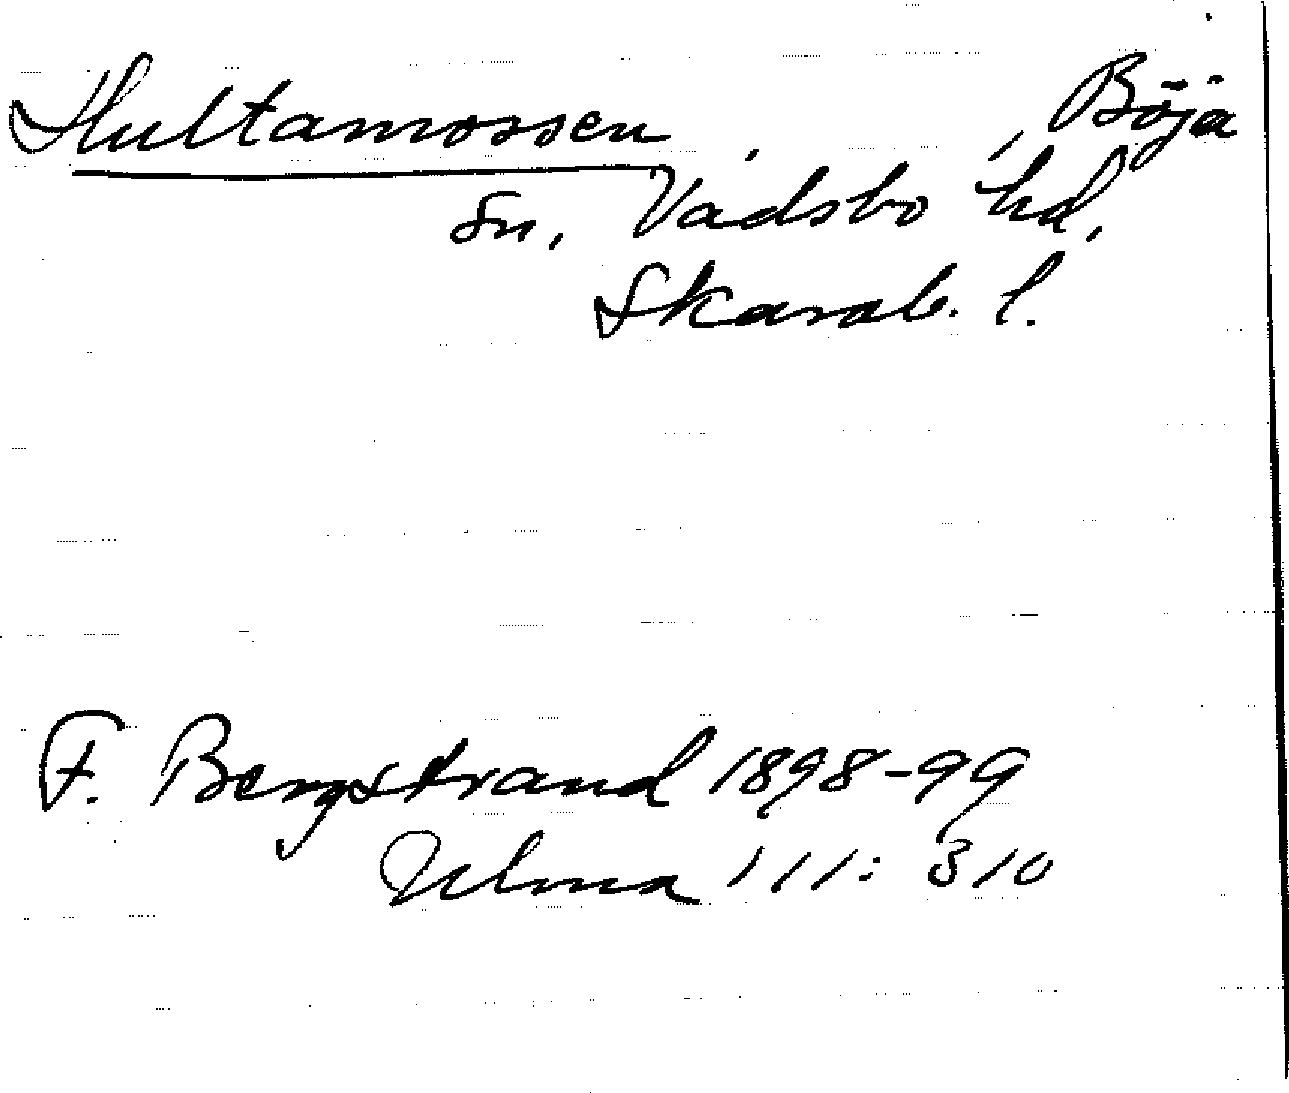 Hultamossen, Böja
sn, Vadsbo hd,
Skarab. l.
F. Bergstrand 1898-99
Ulma 111: 310